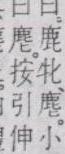 曰。鹿牝、麀。小
曰麀。按引伸